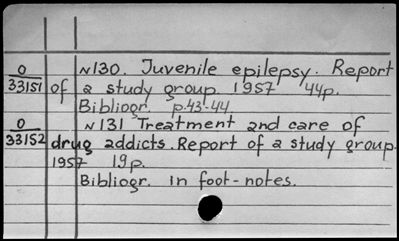 0 N130. Juvenile epilepsy. Report
33151 of a study group. 1957 44p.
Bibliogr. p.43-44
0 N131 Treatment and care of
33152 drug addicts. Report of a study group.
1957 19p.
Bibliogr. in foot-notes.